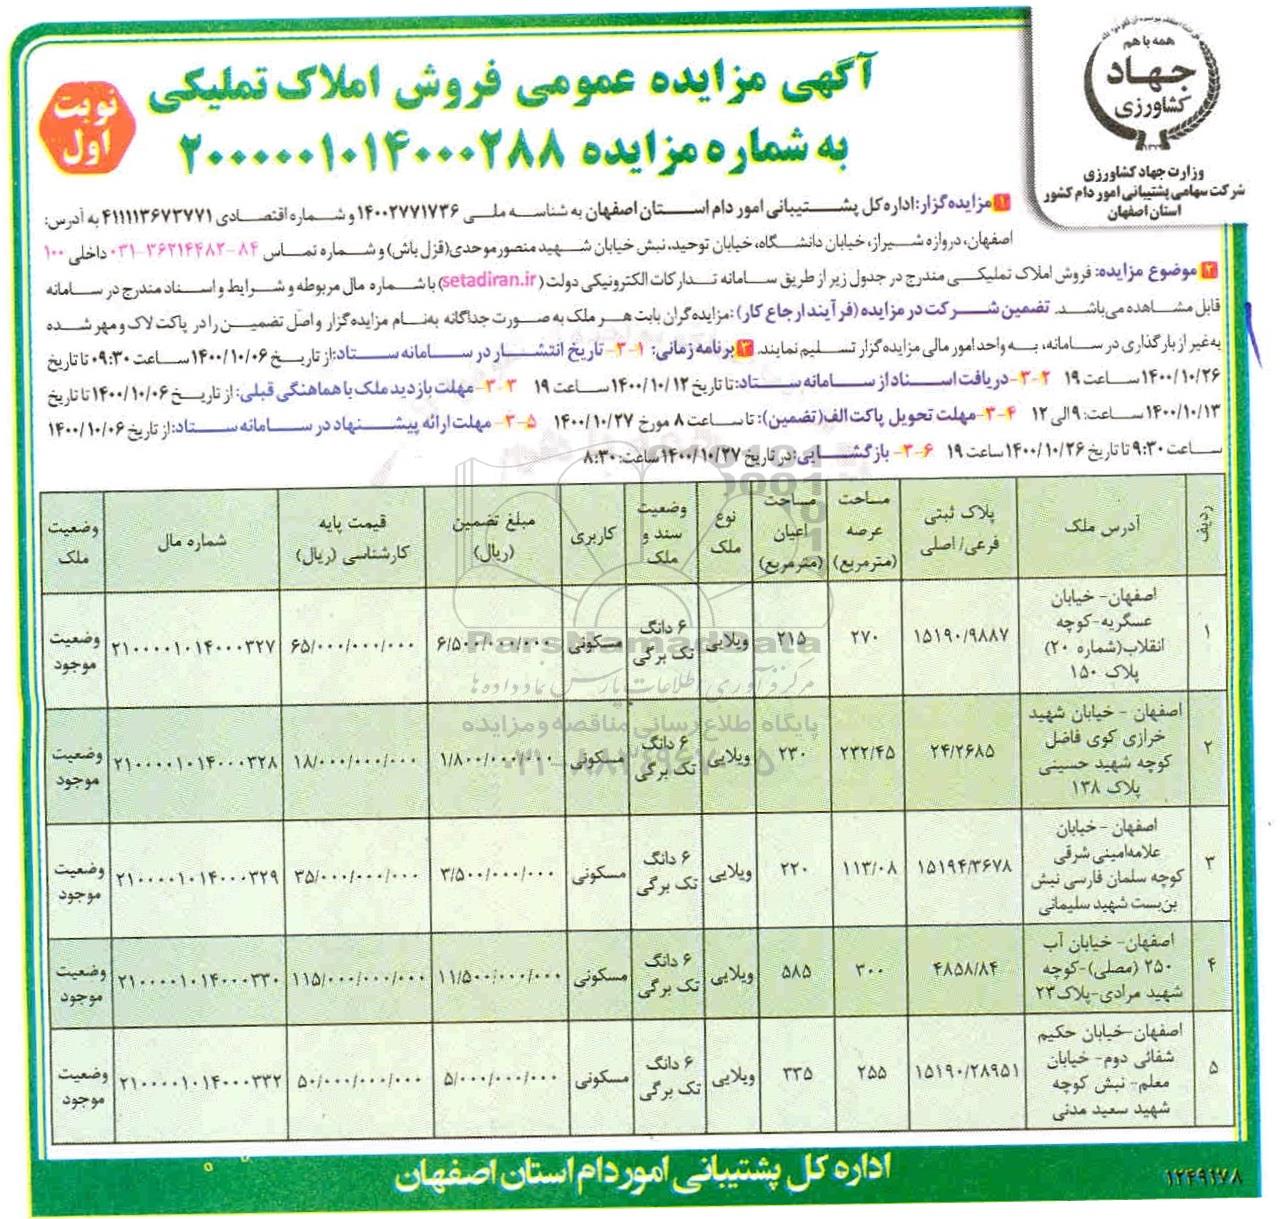 همه با هم
جهاد
کشاورزی
وزارت جهاد کشاورزی
شرکت سهامی پشتیبانی امور دام کشور
استان اصفهان
نوبت
اول
آگهی مزایده عمومی فروش املاک تملیکی
به شماره مزایده ۲۰۰۰۰۰۱۰۱۴۰۰۰۲۸۸
۱ مزایده‌گزار: اداره کل پشتیبانی امور دام استان اصفهان به شناسه ملی ۱۴۰۰۲۷۷۱۷۳۶ و شماره اقتصادی ۴۱۱۱۱۳۶۷۳۷۷۱ به آدرس:
اصفهان، دروازه شیراز، خیابان دانشگاه، خیابان توحید، نبش خیابان شهید منصور موحدی (قزل باش) و شماره تماس ۸۴-۳۶۲۱۴۴۸۲-۰۳۱ داخلی ۱۰۰
۲ موضوع مزایده: فروش املاک تملیکی مندرج در جدول زیر از طریق سامانه تدارکات الکترونیکی دولت (setadiran.ir) با شماره مال مربوطه و شرایط و اسناد مندرج در سامانه
قابل مشاهده می‌باشد. تضمین شرکت در مزایده (فرآیند ارجاع کار): مزایده‌گران بابت هر ملک به صورت جداگانه به‌نام مزایده‌گزار و اصل تضمین را در پاکت لاک و مهر شده
به غیر از بارگذاری در سامانه، به واحد امور مالی مزایده‌گزار تسلیم نمایند. ۳ برنامه زمانی: ۱-۳- تاریخ انتشار در سامانه ستاد: از تاریخ ۱۴۰۰/۱۰/۰۶ ساعت ۰۹:۳۰ تا تاریخ
۱۴۰۰/۱۰/۲۶ ساعت ۱۹ ۲-۳- دریافت اسناد از سامانه ستاد: تا تاریخ ۱۴۰۰/۱۰/۱۲ ساعت ۱۹ ۳-۳- مهلت بازدید ملک با هماهنگی قبلی: از تاریخ ۱۴۰۰/۱۰/۰۶ تا تاریخ
۱۴۰۰/۱۰/۱۳ ساعت: ۹ الی ۱۲ ۴-۳- مهلت تحویل پاکت الف (تضمین): تا ساعت ۸ مورخ ۱۴۰۰/۱۰/۲۷ ۵-۳- مهلت ارائه پیشنهاد در سامانه ستاد: از تاریخ ۱۴۰۰/۱۰/۰۶
ساعت ۹:۳۰ تا تاریخ ۱۴۰۰/۱۰/۲۶ ساعت ۱۹ ۶-۳- بازگشایی: در تاریخ ۱۴۰۰/۱۰/۲۷ ساعت: ۸:۳۰
ردیف آدرس ملک پلاک ثبتی فرعی/اصلی مساحت عرصه (مترمربع) مساحت اعیان (مترمربع) نوع ملک وضعیت سند و ملک کاربری مبلغ تضمین (ریال) قیمت پایه کارشناسی (ریال) شماره مال وضعیت ملک
۱ اصفهان- خیابان عسگریه-کوچه انقلاب(شماره ۲۰) پلاک ۱۵۰ ۱۵۱۹۰/۹۸۸۷ ۲۷۰ ۲۱۵ ویلایی ۶ دانگ تک برگی مسکونی ۶/۵۰۰/۰۰۰/۰۰۰ ۶۵/۰۰۰/۰۰۰/۰۰۰ ۲۱۰۰۰۰۱۰۱۴۰۰۰۳۲۷ وضعیت موجود
۲ اصفهان - خیابان شهید خرازی کوی فاضل کوچه شهید حسینی پلاک ۱۳۸ ۲۴/۲۶۸۵ ۲۳۲/۴۵ ۲۳۰ ویلایی ۶ دانگ تک برگی مسکونی ۱/۸۰۰/۰۰۰/۰۰۰ ۱۸/۰۰۰/۰۰۰/۰۰۰ ۲۱۰۰۰۰۱۰۱۴۰۰۰۳۲۸ وضعیت موجود
۳ اصفهان - خیابان علامه‌امینی شرقی کوچه سلمان فارسی نبش بن‌بست شهید سلیمانی ۱۵۱۹۴/۳۶۷۸ ۱۱۳/۰۸ ۲۲۰ ویلایی ۶ دانگ تک برگی مسکونی ۳/۵۰۰/۰۰۰/۰۰۰ ۳۵/۰۰۰/۰۰۰/۰۰۰ ۲۱۰۰۰۰۱۰۱۴۰۰۰۳۲۹ وضعیت موجود
۴ اصفهان- خیابان آب ۲۵۰ (مصلی)-کوچه شهید مرادی-پلاک۲۳ ۴۸۵۸/۸۴ ۳۰۰ ۵۸۵ ویلایی ۶ دانگ تک برگی مسکونی ۱۱/۵۰۰/۰۰۰/۰۰۰ ۱۱۵/۰۰۰/۰۰۰/۰۰۰ ۲۱۰۰۰۰۱۰۱۴۰۰۰۳۳۰ وضعیت موجود
۵ اصفهان-خیابان حکیم شفائی دوم- خیابان معلم- نبش کوچه شهید سعید مدنی ۱۵۱۹۰/۲۸۹۵۱ ۲۵۵ ۳۳۵ ویلایی ۶ دانگ تک برگی مسکونی ۵/۰۰۰/۰۰۰/۰۰۰ ۵۰/۰۰۰/۰۰۰/۰۰۰ ۲۱۰۰۰۰۱۰۱۴۰۰۰۳۳۲ وضعیت موجود
ParsNamadData
مرکز فرآوری اطلاعات پارس نماد داده‌ها
پایگاه اطلاع رسانی مناقصه و مزایده
اداره کل پشتیبانی امور دام استان اصفهان
۱۲۴۹۱۷۸